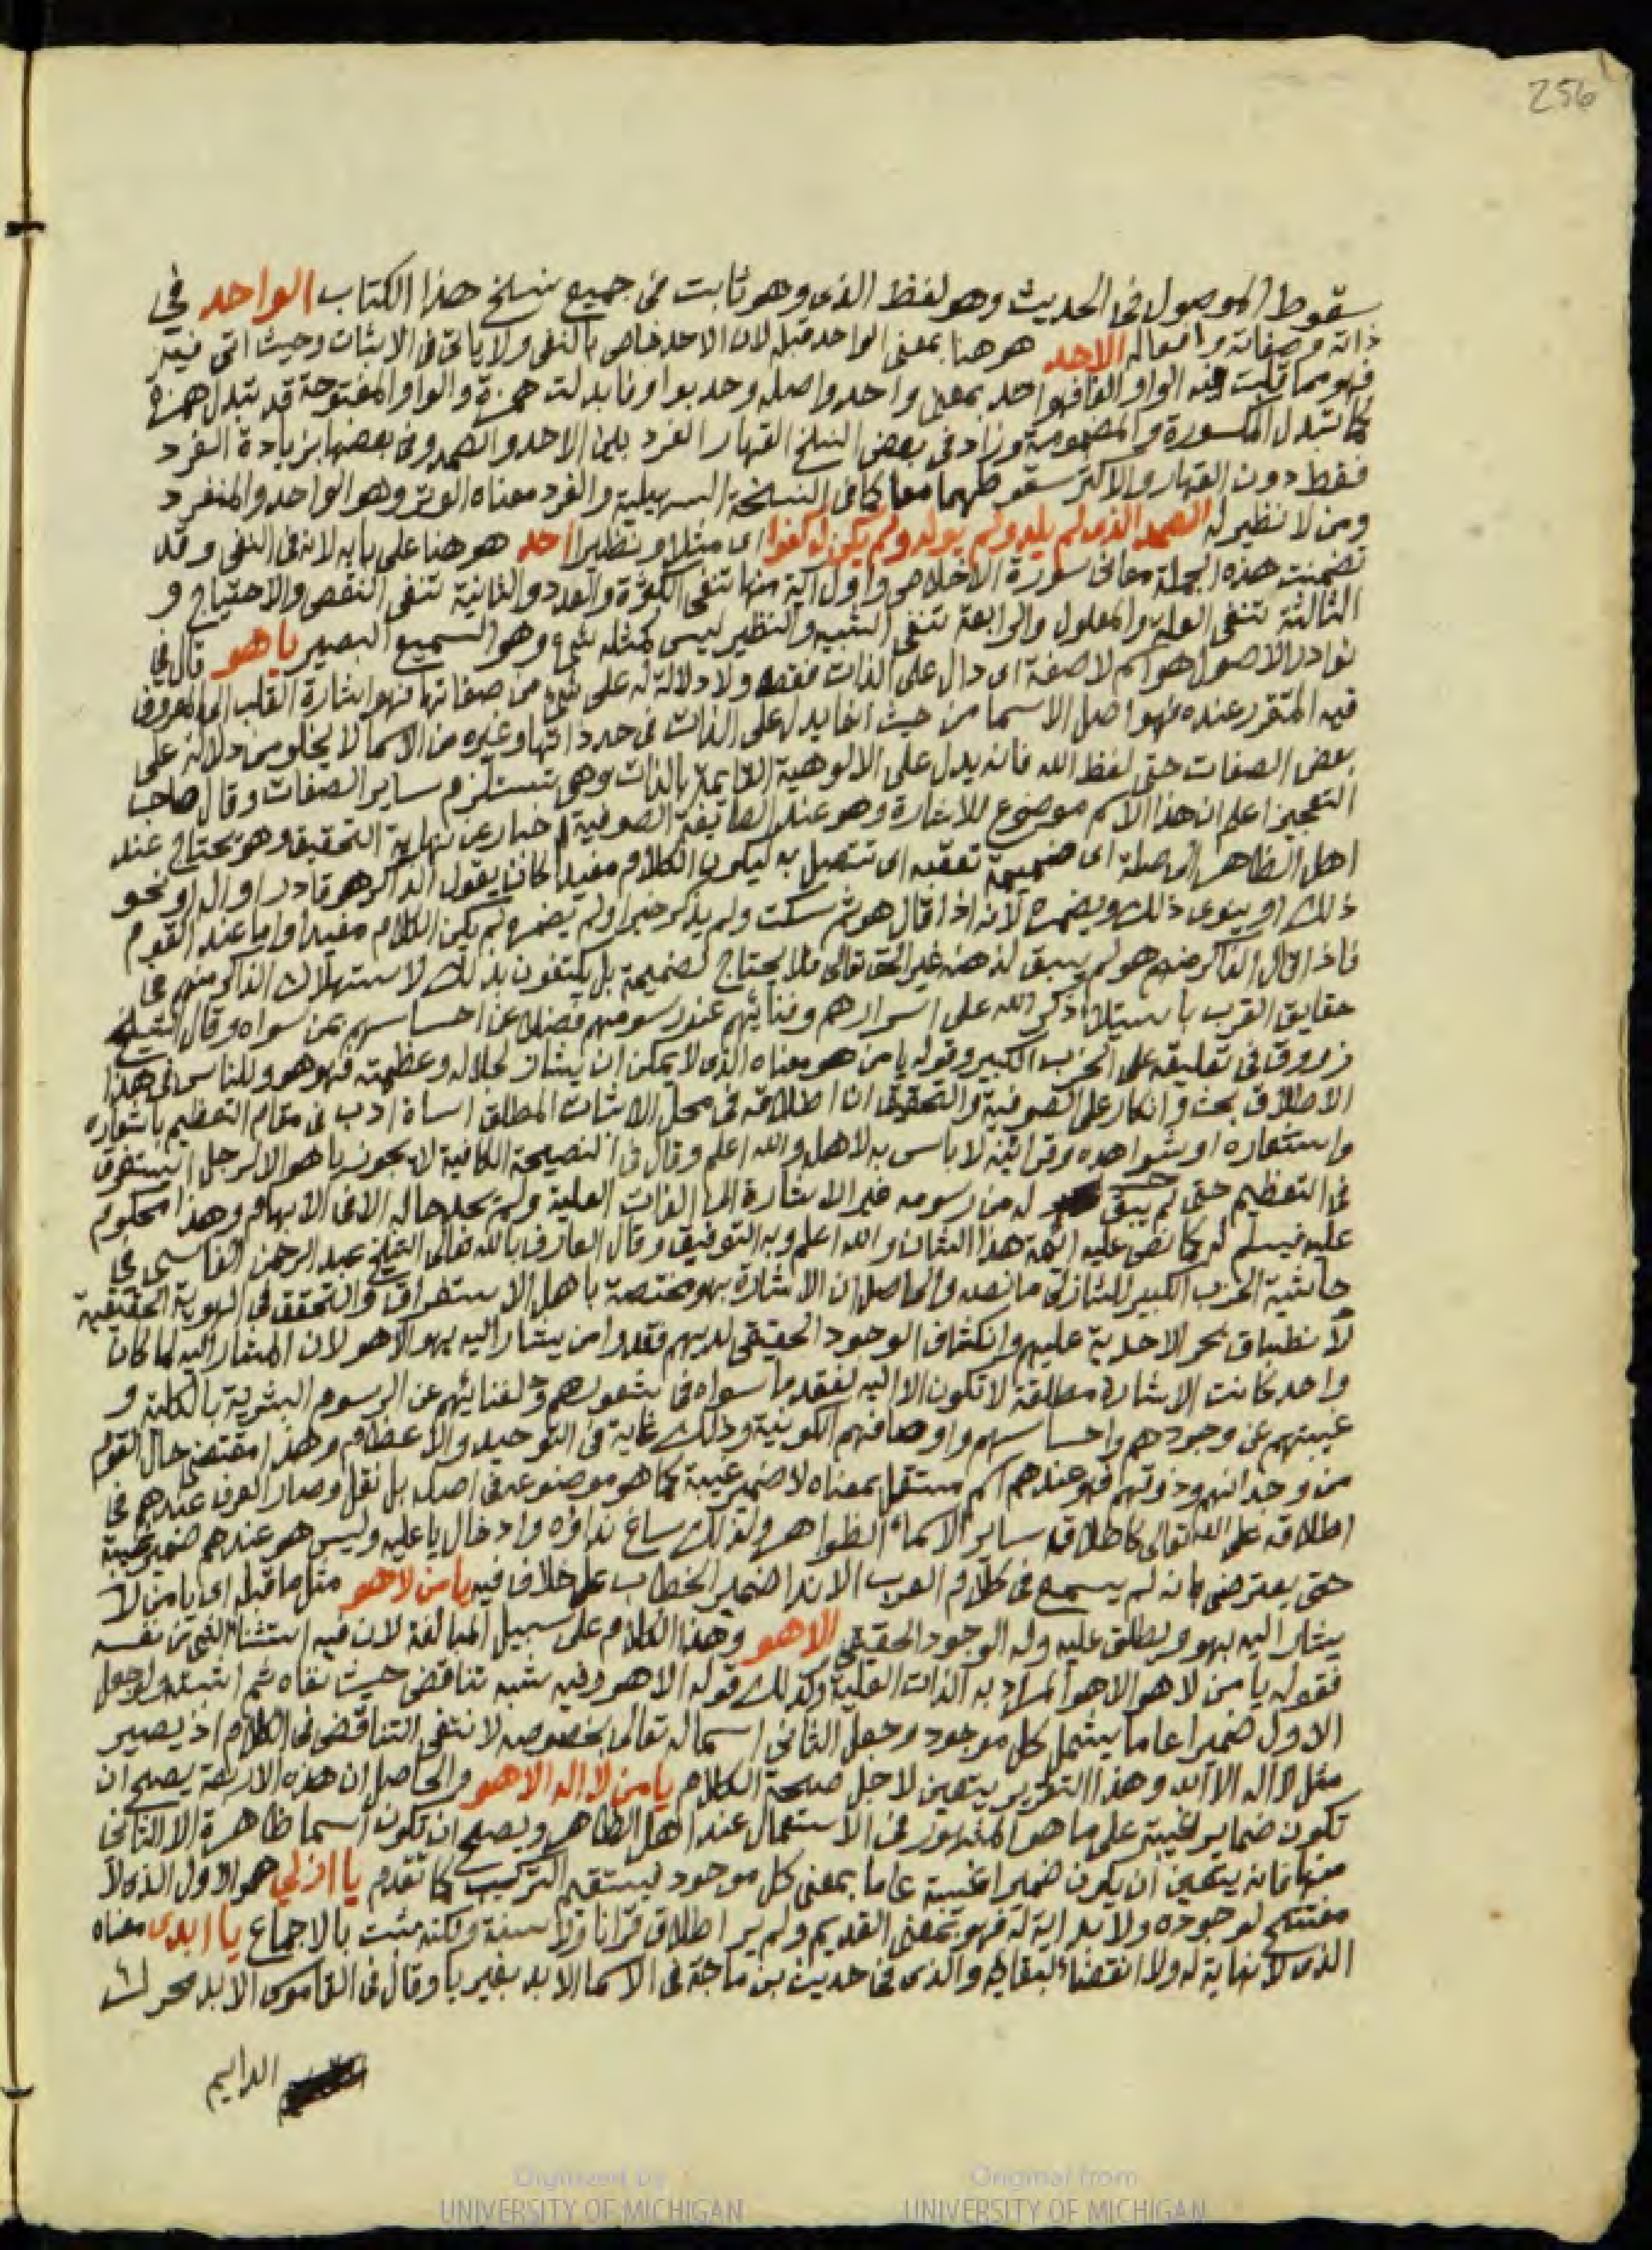 256
سقوط الموصول في الحديث وهو لفظ الذي وهو ثابت في جميع نسخ هذا الكتاب الواحد في
ذاته وصفاته وافعاله الاحد هو هنا بمعنى الواحد قبله لان الاحد خاص بالنفي ولا ياتي في الاثبات وحيث اتى فيه
فهو مما قلبت فيه الواو الفا فهو احد بمعنى واحد واصله وحد بواو فابدلت همزة والواو المفتوحة قد تبدل همزة
كما تبدل المكسورة والمضمومة وزاد في بعض النسخ القهار الفرد بين الاحد والصمد وفي بعضها بزيادة الفرد
فقط دون القهار والاكثر سقوطهما معا كما في النسخة السهيلية والفرد معناه الوتر وهو الواحد والمنفرد
ومن لا نظير له الصمد الذي لم يلد ولم يولد ولم يكن له كفوا اى مثلا ونظيرا احد هو هنا على بابه لانه في النفي وقد
تضمنت هذه الجملة معاني سورة الاخلاص واول اية منها تنفي الكثرة والعدد والثانية تنفي النقص والاحتياج و
الثالثة تنفي العلة والمعلول والرابعة تنفي الشبيه والنظير ليس كمثله شيء وهو السميع البصير يا هو قال في
نوادر الاصول هو اسم لا صفة اى دال على الذات فقط ولا دلالة له على شيء من صفاتها فهو اشارة القلب الى المعروف
فيه المتقرر عنده فهو اصل الاسما من حيث انما يدل على الذات في حد ذاتها وغيره من الاسما لا يخلو من دلالته على
بعض الصفات حتى لفظ الله فانه يدل على الالوهية القايمة بالذات وهي تستلزم ساير الصفات وقال صاحب
التحبير اعلم ان هذا الاسم موضوع للاشارة وهو عند الطايفة الصوفية اخبار عن نهاية التحقيق وهو يحتاج عند
اهل الظاهر الى صلة اى ضميمة تعقبه اى تتصل به ليكون الكلام مفيدا كان يقول الذاكر هو قادر او اله او نحو
ذلك او ينوى ذلك ويضمره لانه اذا قال هو ثم سكت ولم يذكر خبرا ولم يضمره لم يكن الكلام مفيدا واما عند القوم
فاذا قال الذاكر منهم هو لم يسبق لذهنه غير الحق تعالى فلا يحتاج لضميمة بل يكتفون بذلك لاستهلاك الذاكر منهم في
حقايق القرب باستيلاء ذكر الله على اسرارهم وفنائهم عن رسومهم فضلا عن احساسهم بمن سواه وقال الشيخ
زروق في تعليقه على الحزب الكبير وقوله يا من هو معناه الذي لا يمكن ان يشار لجلاله وعظمته فهو هو وللناس في هذا
الاطلاق بحث وانكار على الصوفية والتحقيق ان اطلاقه في محل الاثبات المطلق اساة ادب في مقام التعظيم باشعاره
واستشعاره او شواهده وقرائنه لا باس به لاهله والله اعلم وقال في النصيحة الكافية لا يجوز يا هو الا لرجل استغرق
في التعظيم حتى لم يبق له من رسومه غير الاشارة الى الذات العلية ولم يحل حاله الا في الابهام وهذا محكوم
عليه فيسلم له كما نص عليه ائمة هذا الشان والله اعلم وبه التوفيق وقال العارف بالله تعالى الشيخ عبد الرحمن الفاسي في
حاشية الحزب الكبير للشاذلي ما نصه والحاصل ان الاشارة بهو مختصة باهل الاستغراق والتحقق في الهوية الحقيقية
لانطباق بحر الاحدية عليهم وانكشاف الوجود الحقيقي لديهم فقدوا من يشار اليه بهو الا هو لان المشار اليه لما كان
واحد كانت الاشارة مطلقة لا تكون الا اليه لفقد ما سواه في شعورهم ولفنائهم عن الرسوم البشرية بالكلية و
غيبتهم عن وجودهم واحساسهم واوصافهم الكونية وذلك غاية في التوحيد والاعظام وهذا مقتضى حال القوم
من وجدانهم وذوقهم فهو عندهم اسم مستقل بمعناه لا ضمير غيبة كما هو موضوعه في اصله بل نقل وصار العرف عندهم في
اطلاقه على الله تعالى كاطلاقه ساير الاسماء الظواهر ولذلك ساغ نداؤه وادخال يا عليه وليس هو عندهم ضمير غيبة
حتى يعترض بانه لم يسمع في كلام العرب الا ندا ضمير الخطاب على خلاف فيه يا من لا هو مثل ما قبله اى يا من لا
يشار اليه بهو ويطلق عليه وله الوجود الحقيقي الا هو وهذا الكلام على سبيل المبالغة لان فيه استثناء الشئ من نفسه
فقوله يا من لا هو الا هو المراد به الذات العلية وكذلك قوله الا هو وفيه شبه تناقض حيث نفاه ثم اثبته ولو جعل
الاول ضميرا عاما يشمل كل موجود وجعل الثاني اسما له تعالى بخصوصه لانتفى التناقض في الكلام اذ يصير
مثل لا اله الا الله وهذا التقرير يتعين لاجل صحة الكلام يا من لا اله الا هو والحاصل ان هذه الاربعة يصلح ان
تكون ضماير لغيبة على ما هو المشهور في الاستعمال عند اهل الظاهر ويصلح ان تكون اسما ظاهرة الا الثاني
منها فانه يتعين ان يكون ضميرا لغيبة عاما بمعنى كل موجود فيستقيم التركيب كما تقدم يا ازلي هو الاول الذي لا
مفتتح لوجوده ولا بداية له فهو بمعنى القديم ولم ير اطلاق قرانا ولا سنة ولكنه مثبت بالاجماع يا ابدى معناه
الذي لا نهاية له ولا انقضاء لبقائه والذي في حديث بن ماجة في الاسما الابد بغير يا وقال في القاموس الابد محركة
الدايم
Digitized by
UNIVERSITY OF MICHIGAN
Original from
UNIVERSITY OF MICHIGAN